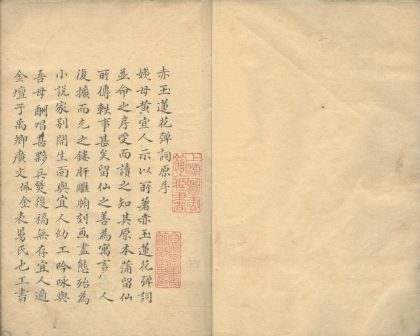 赤玉蓮花彈詞原序
姨母黃宜人示以所著赤玉蓮花彈詞
並命之序受而讀之知其原本蒲留仙
所傳軼事甚矣留仙之善為寓言宜人
復擴而充之鏤肝雕腑刻畫盡態殆為
小說家别開生面與宜人幼工吟咏與
吾母酬唱甚夥兵燹後稿無存宜人適
金壇于禹卿廣文佩金表舅氏也工書
上海圖書館藏書